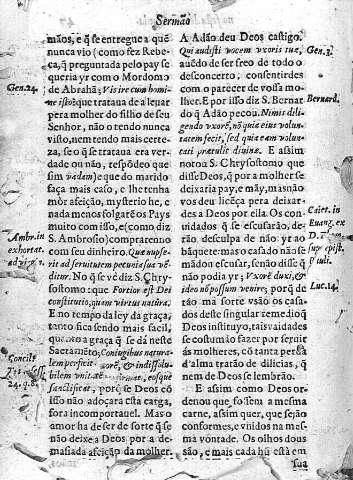 Sermão
mãos, e q̃ se entregue a quẽ
nunca vio (como fez Rebe-
ca, q̃ preguntada pelo pay se
queria yr com o Mordomo
de Abrahã; Vis ire cum homi-
ne isto? que trataua de a leuar
pera molher do filho de seu
Senhor, não o tendo nunca
visto, nem tendo mais certe-
za, se o q̃ se trataua era ver
dade ou não, respõdeo que
sim vadam) e que do marido
faça mais caso, e lhe tenha
môr afeição, mysterio he, e
nada menos folgarẽ os Pays
muito com isso, e (como diz
S. Ambrosio) comprarenno
com seu dinheiro. Quæ nupse-
rit ad seruitutem pecunia sua vẽ-
ditur. No q̃ se vê diz S. Chry-
sostomo: que Fortior est Dei
constitutio, quam virtus naturæ.
E no tempo da ley da graça,
tanto fica sendo mais facil,
quanto a graça q̃ se dá neste
Sacramẽto; Coniugibus natura-
lem perficit amorẽ, & indissolu-
bilem vnitatẽ confirmat, eosque
sanctificat, porq̃ se Deos cõ
isso não adoçara esta carga,
fora incomportauel. Mas o
amor ha de ser de sorte q̃ se
não deixe a Deos por a de-
masiada afeição da molher.
Gen. 24.
Ambr. in
exhortat.
ad virg.
Concil.
24. q. 8.
A Adão deu Deos castigo.
Qui audisti vocem vxoris tuæ,
auẽdo de ser freo de todo o
desconcerto, consentirdes
com o parecer de vossa mo-
lher. E por isso diz S. Bernar
do q̃ Adão peccou. Nimis dili-
gendo vxorẽ, nõ quia eius volun-
tatem fecit, sed quia eam volun-
tati prætulit diuinæ. E assim
notou S. Chrysostomo que
disse Deos, q̃ por a molher se
deixaria pay, e mãy, mas não
vos deu licẽça pera deixar-
des a Deos por ella. Os con-
uidados q̃ se escusarão, de-
rão desculpa de não yr ao
bãquete; mas o casado não se
mãdou escusar, senão disse q̃
não podia yr; Vxorẽ duxi, &
ideo nõ possum venire; porq̃ de
tão ma sorte vsão os casa-
dos deste singular remedio q̃
Deos instituyo, tais vaidades
se costumão fazer por seruir
ás molheres, cõ tanta perda
d'alma tratão de dilicias, q̃
nem de Deos se lembrão.
E assim como Deos or-
denou que, fossem a mesma
carne, assim quer, que sejão
conformes, e vnidos na mes-
ma vontade. Os olhos dous
são, e mais cada hũ está em
sua
Gen. 3.
Bernard.
Caiet. in
Euang. ex
sup epist.
Pauli.
Luc. 14.